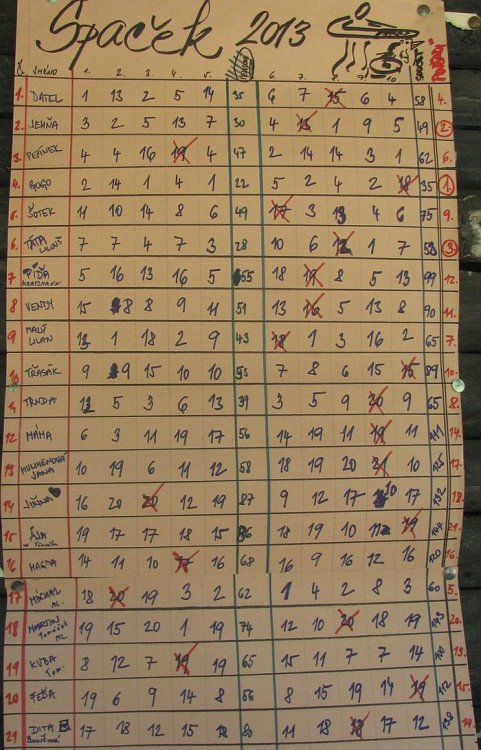 Špaček 2013
Č. JMÉNO 1. 2. 3. 4. 5. 6. 7. 8. 9. 10.
1. DATEL 1 13 2 5 14 35 6 7 15 6 4 58 4.
2. JEHŇA 3 2 5 13 7 30 4 13 1 9 5 49 2.
3. PEŽINEK 4 4 16 19 4 47 2 14 14 3 1 62 6.
4. GOGO 2 14 1 4 1 22 5 2 4 2 18 35 1.
5. ŠUTEK 11 10 14 8 6 49 17 3 13 4 6 75 9.
6. TÁTA 7 7 4 7 3 28 10 6 12 1 7 3.
7 PÍĎA 5 16 13 16 5 55 18 19 8 5 13 99 12.
8 VENDY 15 8 8 9 11 51 13 16 5 13 8 90 11.
9 MALÝ LILAN 13 1 18 2 9 43 18 1 3 16 2 65 7.
10 TŘASÁK 9 9 15 10 10 53 7 8 6 15 15 89 10.
11 TRNDA 12 5 3 6 13 39 3 5 9 20 9 65 8.
12 MAHA 6 3 11 19 17 56 14 19 11 19 11 111 14.
13 JANA 10 19 6 11 12 58 18 19 20 21 10 125 17.
14 JIŘINA 16 20 20 12 19 87 9 12 17 10 17 132 18.
15 ÁJA 19 17 17 18 15 86 18 19 10 19 21.
16 MAGDA 14 11 10 17 16 68 16 9 16 12 16 120 16.
17 MICHAL ML. 18 20 19 3 2 62 1 4 2 8 3 60 5.
18 MARTIN ML 19 15 20 1 19 74 12 10 20 18 19 143 20.
19 KUBA TOM. 8 12 7 19 19 65 15 11 7 7 14 13.
20 FEŇA 19 6 9 14 8 56 8 15 19 14 19 112 15.
21 DITA B 17 18 12 15 18 80 11 18 18 17 12 138 19.